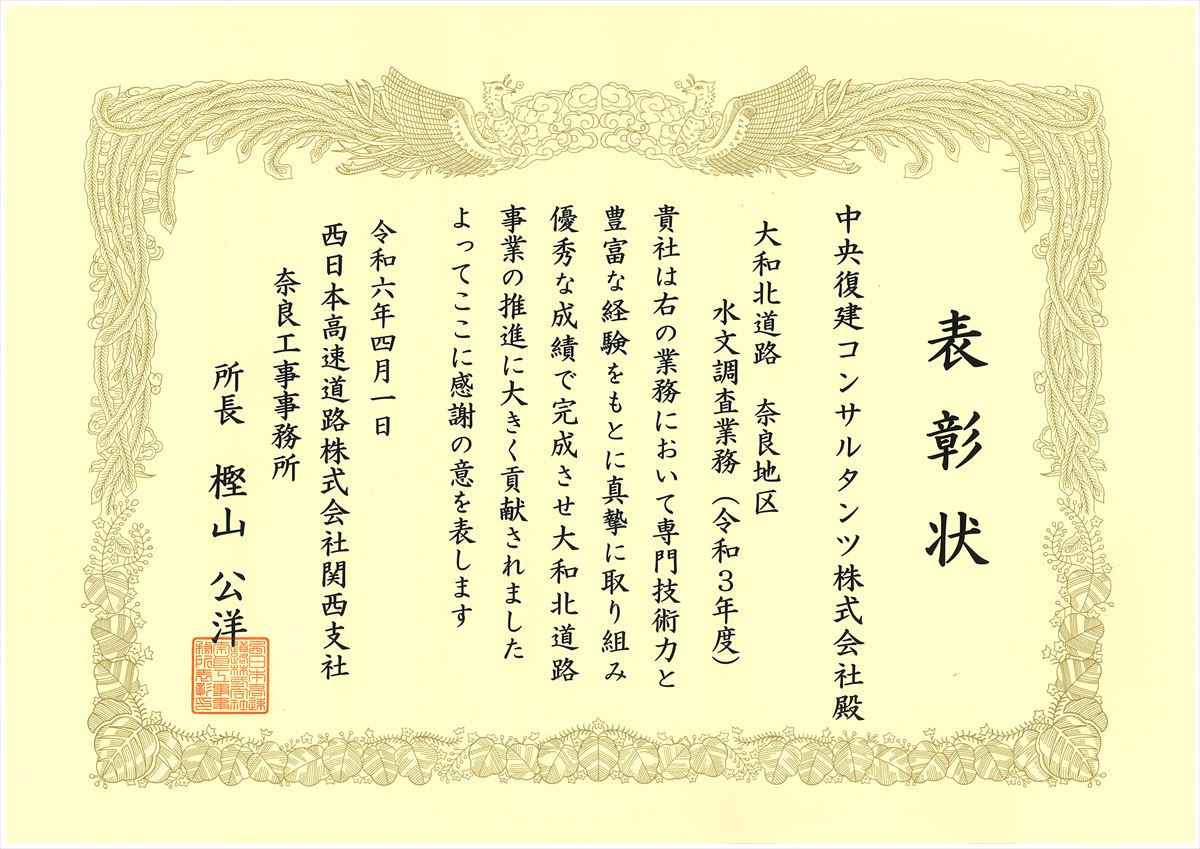 表彰状
中央復建コンサルタンツ株式会社殿
大和北道路 奈良地区
水文調査業務（令和３年度）
貴社は右の業務において専門技術力と
豊富な経験をもとに真摯に取り組み
優秀な成績で完成させ大和北道路
事業の推進に大きく貢献されました
よってここに感謝の意を表します
令和六年四月一日
西日本高速道路株式会社関西支社
奈良工事事務所
所長 樫山 公洋
西日本高速
道路株式会社
奈良工事事
務所表彰印